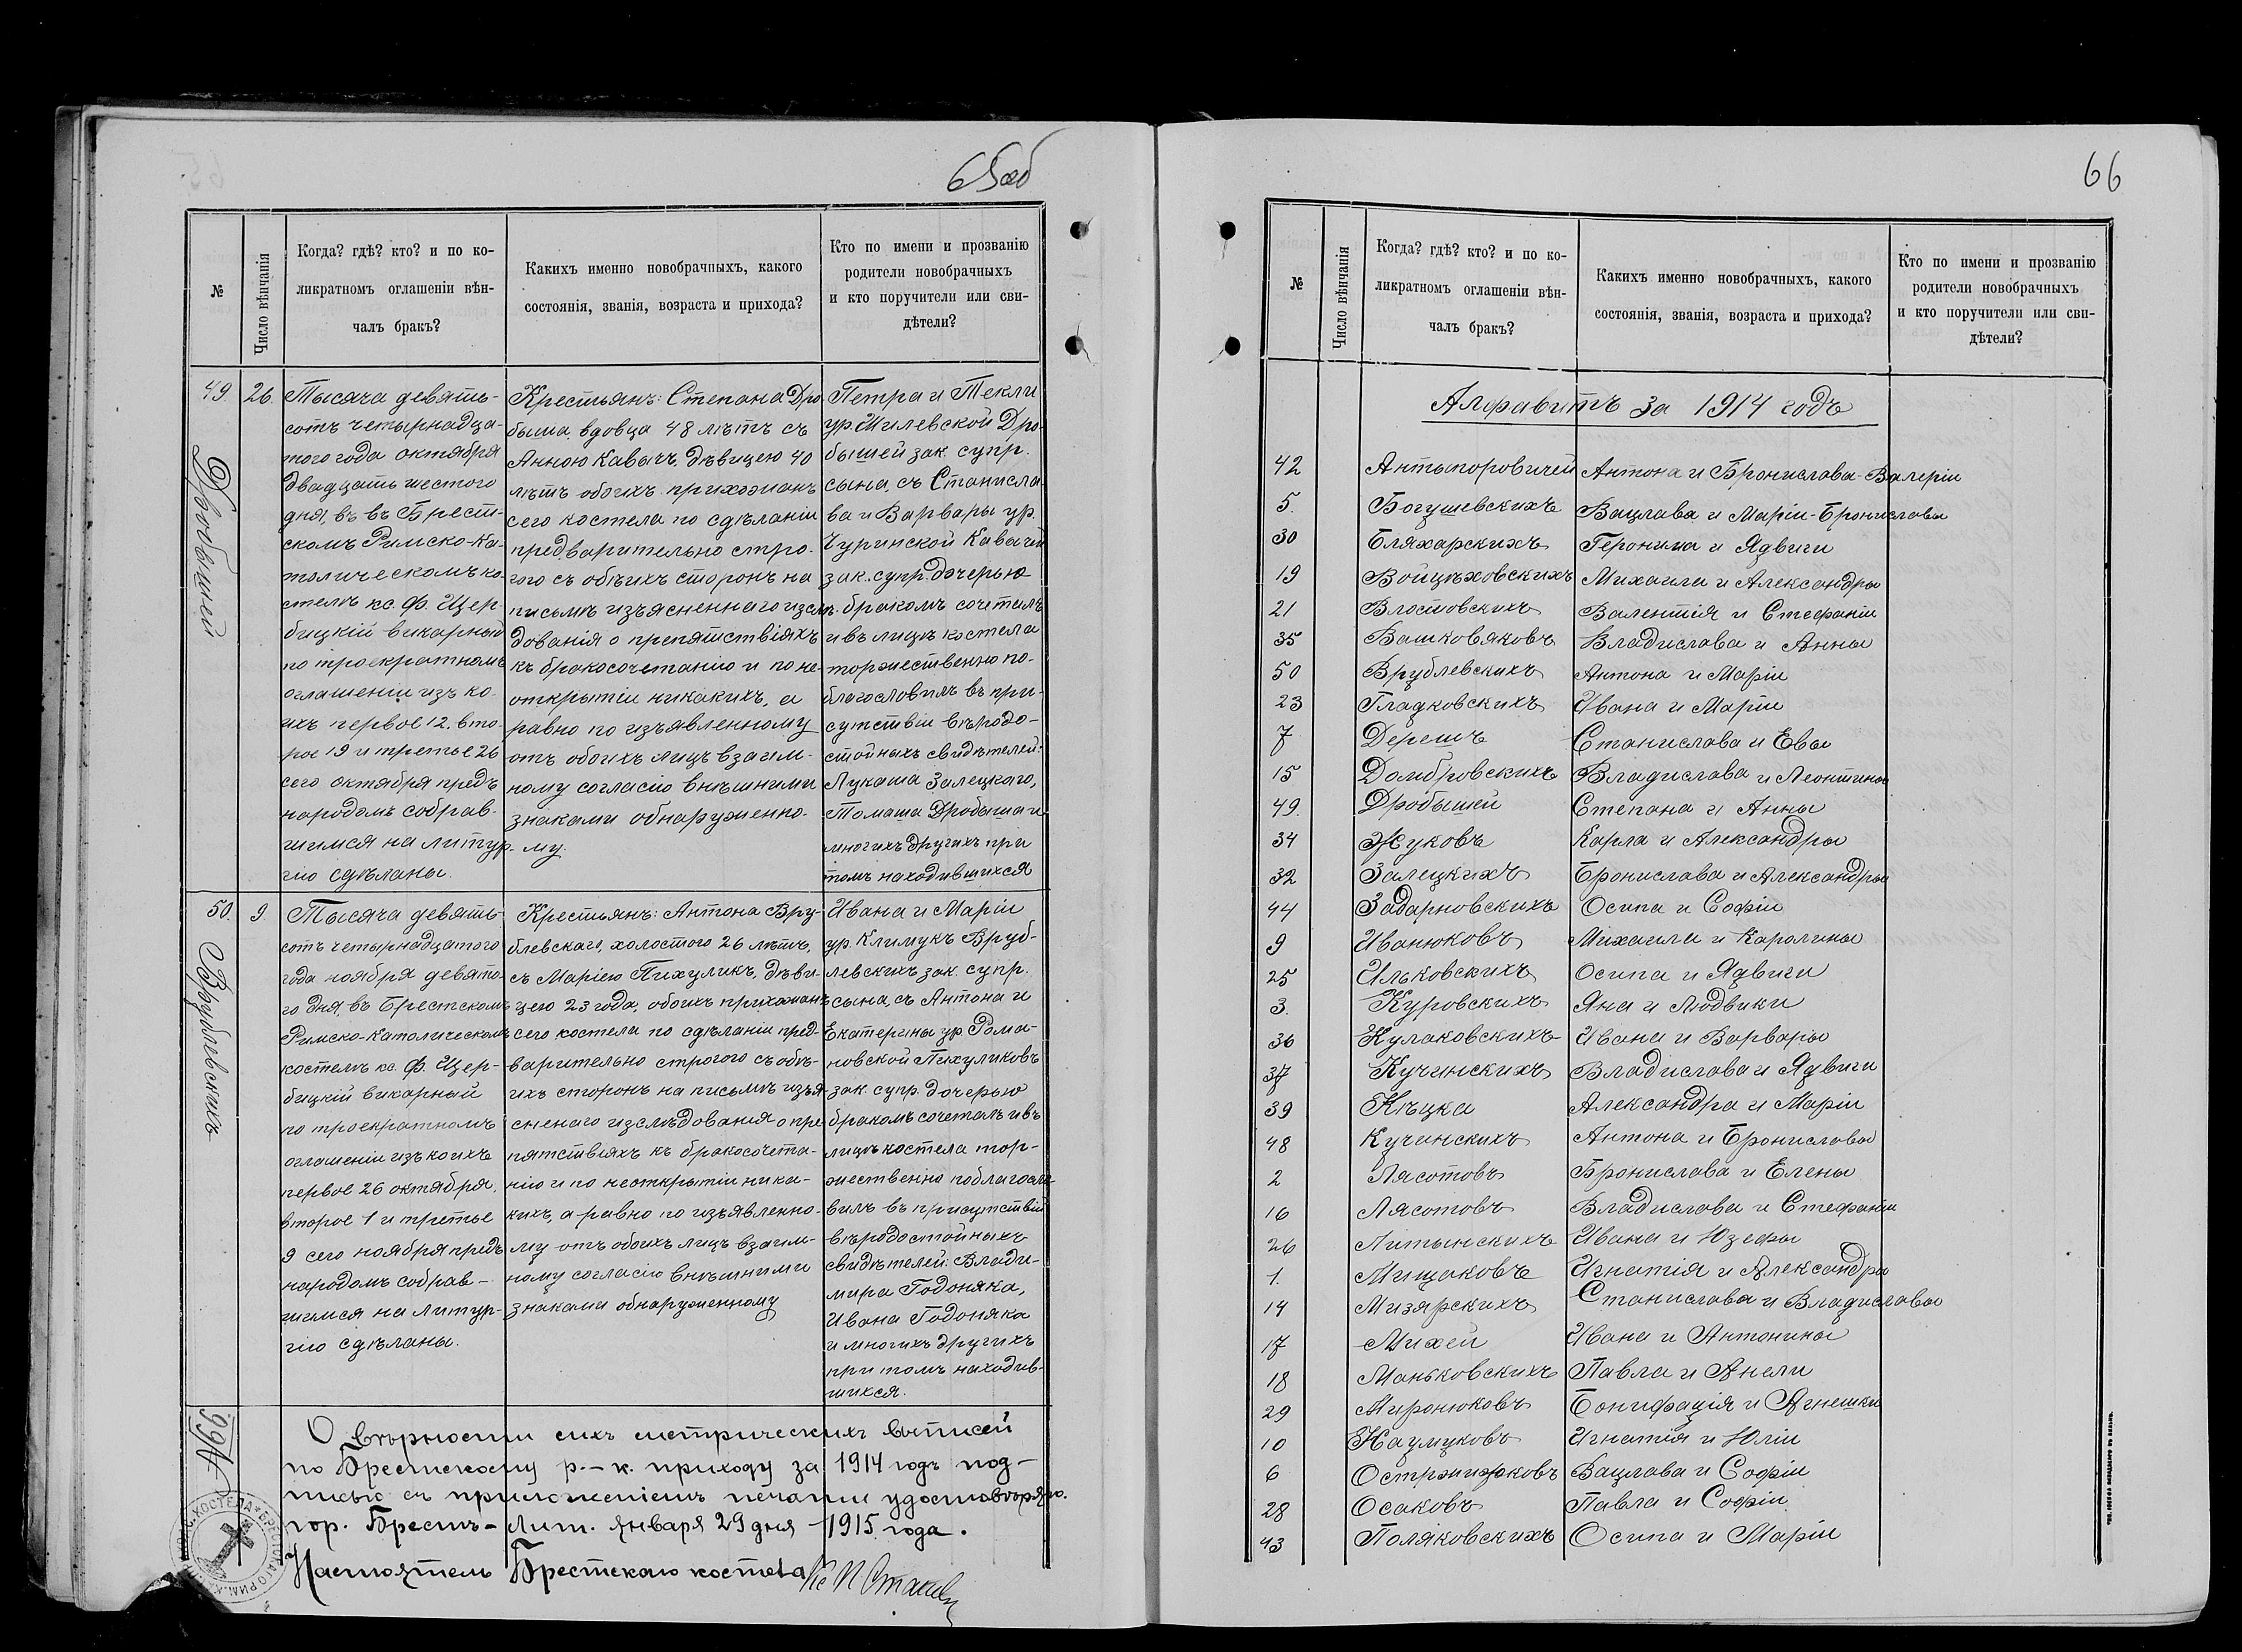 65об
№
Число вѣнчанія
Когда? гдѣ? кто? и по ко-
ликратномъ оглашеніи вѣн-
чалъ бракъ?
Какихъ именно новобрачныхъ, какого
состоянія, званія, возраста и прихода?
Кто по имени и прозванію
родители новобрачныхъ
и кто поручители или сви-
дѣтели?
49.
Дробышей
26.
Тысяча девять-
сотъ четырнадца-
того года октября
двадцать шестого
дня, въ въ Брест-
скомъ Римско-Ка-
толическомъ ко-
стелѣ кс. Ф. Щер-
бицкій викарный
по троекратномъ
оглашеніи изъ ко-
ихъ первое 12. вто-
рое 19 и третье 26
сего октября предъ
народомъ собрав-
шимся на литур-
гію сдѣланы.
Крестьянъ: Степана Дро
быша, вдовца 48 лѣтъ съ
Анною Кавычъ, дѣвицею 40
лѣтъ обоихъ прихожанъ
сего костела по сдѣланіи
предварительно стро-
гого съ обѣихъ сторонъ на
письмѣ изъясненнаго изслѣ-
дованія о препятствіяхъ
къ бракосочетанію и по не-
открытіи никакихъ, а
равно по изъявленному
отъ обоихъ лицъ взаим-
ному согласію внѣшними
знаками обнаруженно-
му.
Петра и Текли
ур. Милевской Дро-
бышей зак. супр.
сына, съ Станисла
ва и Варвары ур.
Чуринской Кавычей
зак. супр. дочерью
бракомъ сочеталъ
и въ лицѣ костела
торжественно по-
благословилъ въ при-
сутствіи вѣродо-
стойныхъ свидѣтелей:
Лукаша Залецкаго,
Томаша Дробыша и
многихъ другихъ при
томъ находившихся
50.
Врублевскихъ
9.
Тысяча девять-
сотъ четырнадцатого
года ноября девято-
го дня, въ Брестскомъ
Римско-Католическомъ
костелѣ кс. Ф. Щер-
бицкій викарный
по троекратномъ
оглашеніи изъ коихъ
первое 26 октября,
второе 1 и третье
9 сего ноября предъ
народомъ собрав-
шимся на литур-
гію сдѣланы.
Крестьянъ: Антона Вру-
блевскаго, холостого 26 лѣтъ,
съ Маріею Пихуликъ, дѣви-
цею 23 года, обоихъ прихожанъ
сего костела по сдѣланіи пред-
варительно строгого съ обѣ-
ихъ сторонъ на письмѣ изъя-
сненаго изслѣдованія о пре
пятствіяхъ къ бракосочета-
нію и по неоткрытіи ника-
кихъ, а равно по изъявленно-
му отъ обоихъ лицъ взаим-
ному согласію внѣшними
знаками обнаруженному
Ивана и Маріи
ур. Климукъ Вруб-
левскихъ зак. супр.
сына, съ Антона и
Екатерины ур. Рома-
новской Пихуликовъ
зак. супр. дочерью
бракомъ сочеталъ и въ
лицѣ костела тор-
жественно поблагосло-
вилъ въ присутствіи
вѣродостойныхъ
свидѣтелей: Влади-
мира Годоняка,
Ивана Годоняка
и многихъ другихъ
при томъ находив-
шихся.
О вѣрности сихъ метрическихъ выписей
по Брестскому р.-к. приходу за 1914 годъ под-
писью съ приложеніемъ печати удостовѣряю.
гор. Брестъ-Лит. января 29 дня 1915 года.
Настоятель Брестскаго костела Кс
66
№
Число вѣнчанія
Когда? гдѣ? кто? и по ко-
ликратномъ оглашеніи вѣн-
чалъ бракъ?
Какихъ именно новобрачныхъ, какого
состоянія, званія, возраста и прихода?
Кто по имени и прозванію
родители новобрачныхъ
и кто поручители или сви-
дѣтели?
Алфавитъ за 1914 годъ
42 Антыпоровичей Антона и Бронислава-Валеріи
5. Богушевскихъ Вацлава и Маріи-Брониславы
30 Бляхарскихъ Геронима и Ядвиги
19 Войцѣховскихъ Михаила и Александры
21 Влостовскихъ Валентія и Стефаніи
35 Вашковяковъ Владислава и Анны
50 Врублевскихъ Антона и Маріи
23 Гладковскихъ Ивана и Маріи
7 Дерешъ Станислава и Евы
15 Домбровскихъ Владислава и Леонтины
49. Дробышей Степана и Анны
34 Жуковъ Карла и Александры
32 Залецкихъ Бронислава и Александры
44 Задарновскихъ Осипа и Софіи
9 Иванюковъ Михаила и Каролины
25 Ильковскихъ Осипа и Ядвиги
3. Куровскихъ Яна и Людвики
36 Кулаковскихъ Ивана и Варвары
37 Кучинскихъ Владислава и Ядвиги
39 Кѣцка Александра и Маріи
48 Кучинскихъ Антона и Брониславы
2 Лясотовъ Бронислава и Елены
16 Лясотовъ Владислава и Стефаніи
26 Литынскихъ Ивана и Юзефы
1. Мищаковъ Игнатія и Александры
14 Мизярскихъ Станислава и Владиславы
17 Михей Ивана и Антонины
18 Маньковскихъ Павла и Анели
29 Миронюковъ Бонифація и Агнешки
10 Наумуковъ Игнатія и Юліи
6 Остржижковъ Вацлава и Софіи
28 Осаковъ Павла и Софіи
43 Поляковскихъ Осипа и Маріи